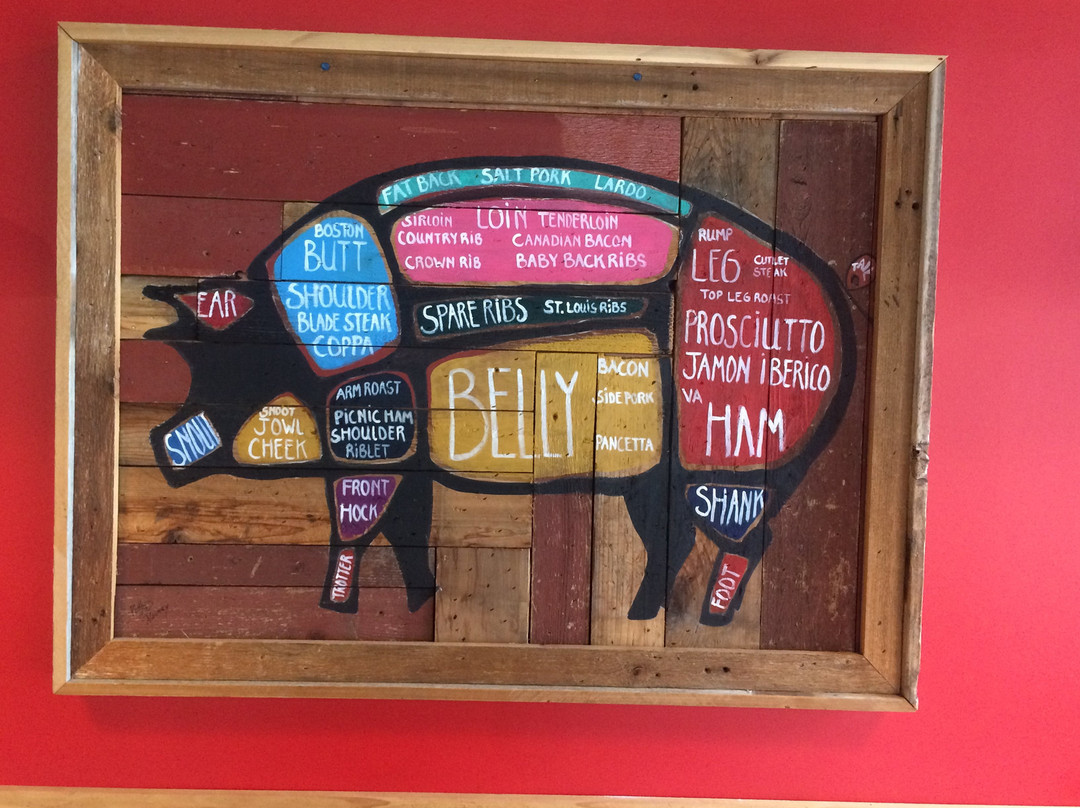 FAT BACK SALT PORK LARDO
SIRLOIN LOIN TENDERLOIN
COUNTRY RIB CANADIAN BACON
CROWN RIB BABY BACK RIBS
BOSTON
BUTT
SHOULDER
BLADE STEAK
COPPA
EAR
SPARE RIBS ST. LOUIS RIBS
RUMP
LEG CUTLET
STEAK
TOP LEG ROAST
PROSCIUTTO
JAMON IBERICO
VA
HAM
BELLY
BACON
SIDE PORK
PANCETTA
ARM ROAST
PICNIC HAM
SHOULDER
RIBLET
SNOOT
JOWL
CHEEK
FRONT
HOCK
TROTTER
SHANK
FOOT